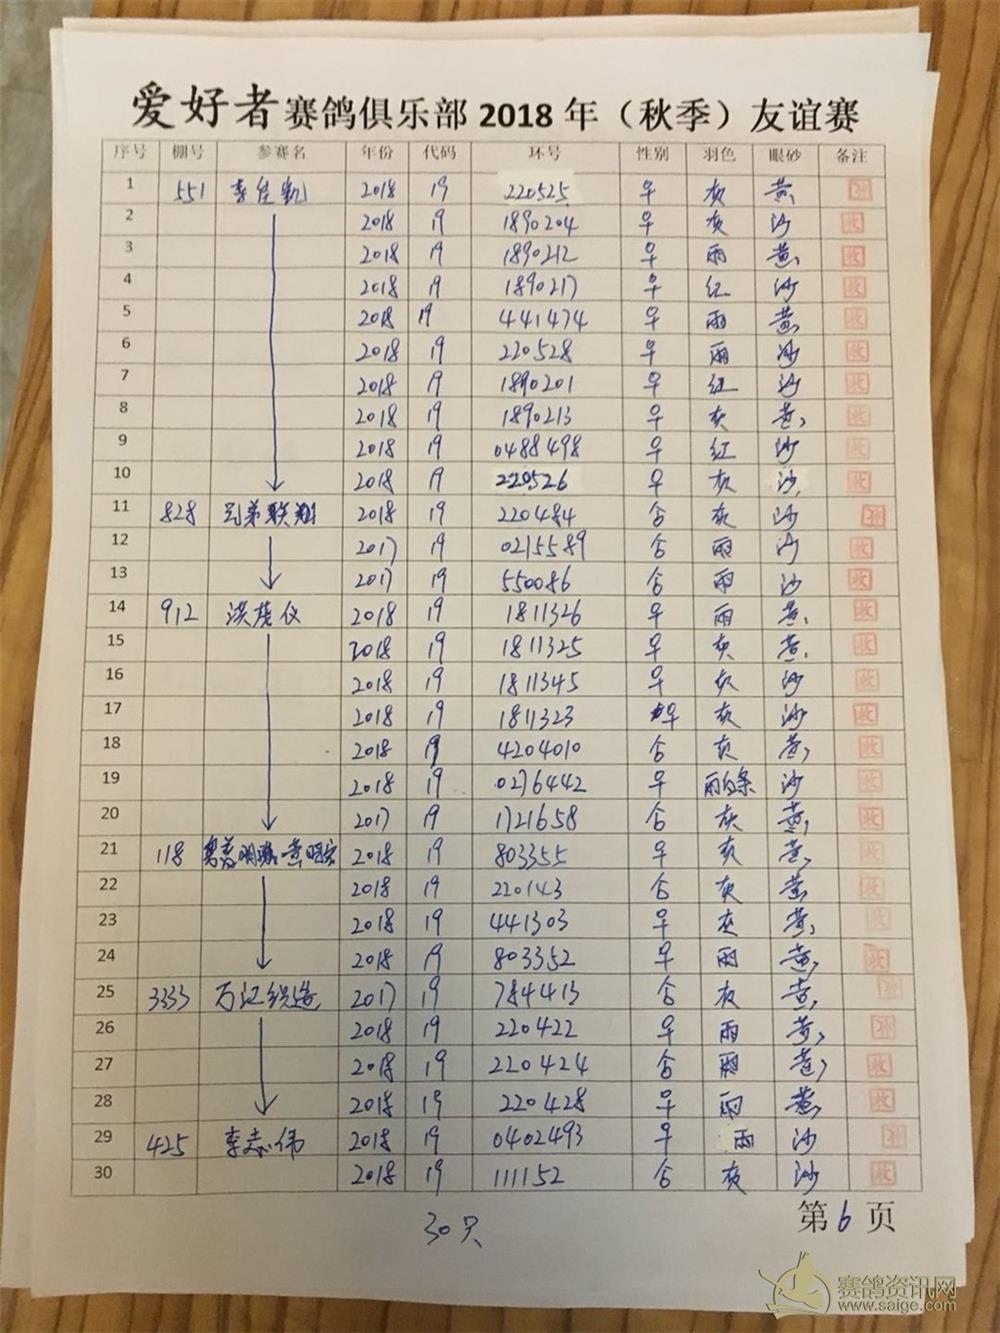 爱好者赛鸽俱乐部2018年（秋季）友谊赛
序号 棚号 参赛名 年份 代码 环号 性别 羽色 眼砂 备注
1 551 李佳凯 2018 19 220525 早 灰 黄
2 2018 19 1890204 早 灰 沙 收
3 2018 19 1890212 早 雨 黄 收
4 2018 19 1890217 早 红 沙 收
5 2018 19 441474 早 雨 黄 收
6 2018 19 220528 早 雨 沙 收
7 2018 19 1890201 早 红 沙 收
8 2018 19 1890213 早 灰 黄 收
9 2018 19 0488498 早 红 沙 收
10 2018 19 220526 早 灰 沙 收
11 828 兄弟联翔 2018 19 220484 合 灰 沙
12 2017 19 0215589 合 雨 沙 收
13 2017 19 550086 合 雨 沙 收
14 912 洪茂仪 2018 19 1811326 早 雨 黄 收
15 2018 19 1811325 早 灰 黄 收
16 2018 19 1811345 早 灰 沙 收
17 2018 19 1811323 早 灰 沙 收
18 2018 19 4204010 合 灰 黄 收
19 2018 19 0276442 早 雨白条 沙 收
20 2017 19 1721658 合 灰 黄 收
21 118 2018 19 803355 早 灰 黄 收
22 2018 19 220143 合 灰 黄 收
23 2018 19 441303 早 灰 黄 收
24 2018 19 803352 早 雨 黄 收
25 3333 万江织造 2017 19 784413 合 灰 黄
26 2018 19 220422 早 雨 黄
27 2018 19 220424 合 雨 黄 收
28 2018 19 220428 早 雨 黄 收
29 425 李志伟 2018 19 0402493 早 雨 沙
30 2018 19 111152 合 灰 沙 收
30只
第6页
赛鸽资讯网
www.saige.com